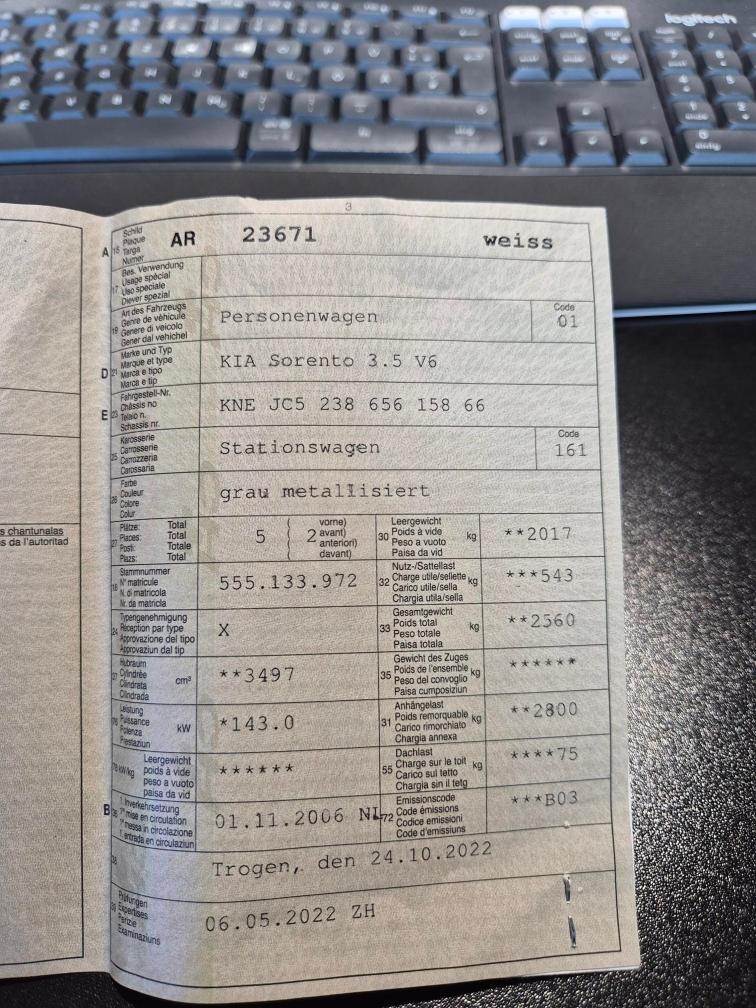 logitech
3
A 15 Schild Plaque Targa Numer AR 23671 weiss
17 Bes. Verwendung Usage spécial Uso speciale Diever spezial
19 Art des Fahrzeugs Genre de véhicule Genere di veicolo Gener dal vehichel Personenwagen Code 01
D 21 Marke und Typ Marque et type Marca e tipo Marca e tip KIA Sorento 3.5 V6
E 23 Fahrgestell-Nr. Châssis no Telaio n. Schassis nr. KNE JC5 238 656 158 66
25 Karosserie Carrosserie Carrozzeria Carossaria Stationswagen Code 161
26 Farbe Couleur Colore Colur grau metallisiert
s chantunalas
s da l'autoritad
27 Plätze: Total Places: Total Posti: Totale Plazs: Total 5 ( 2 vorne) avant) anteriori) davant)
30 Leergewicht Poids à vide Peso a vuoto Paisa da vid kg **2017
18 Stammnummer N° matricule N. di matricola Nr. da matricla 555.133.972
32 Nutz-/Sattellast Charge utile/sellette Carico utile/sella Chargia utila/sella kg ***543
24 Typengenehmigung Réception par type Approvazione del tipo Approvaziun dal tip X
33 Gesamtgewicht Poids total Peso totale Paisa totala kg **2560
37 Hubraum Cylindrée Cilindrata Cilindrada cm³ **3497
35 Gewicht des Zuges Poids de l'ensemble Peso del convoglio Paisa cumposiziun kg ******
76 Leistung Puissance Potenza Prestaziun kW *143.0
31 Anhängelast Poids remorquable Carico rimorchiato Chargia annexa kg **2800
78 kW/kg Leergewicht poids à vide peso a vuoto paisa da vid ******
55 Dachlast Charge sur le toit Carico sul tetto Chargia sin il tetg kg ****75
B 36 1. Inverkehrsetzung 1re mise en circulation 1a messa in circolazione 1. entrada en circulaziun 01.11.2006 NL
72 Emissionscode Code émissions Codice emissioni Code d'emissiuns ***B03
38 Trogen, den 24.10.2022
39 Prüfungen Expertises Perizie Examinaziuns 06.05.2022 ZH